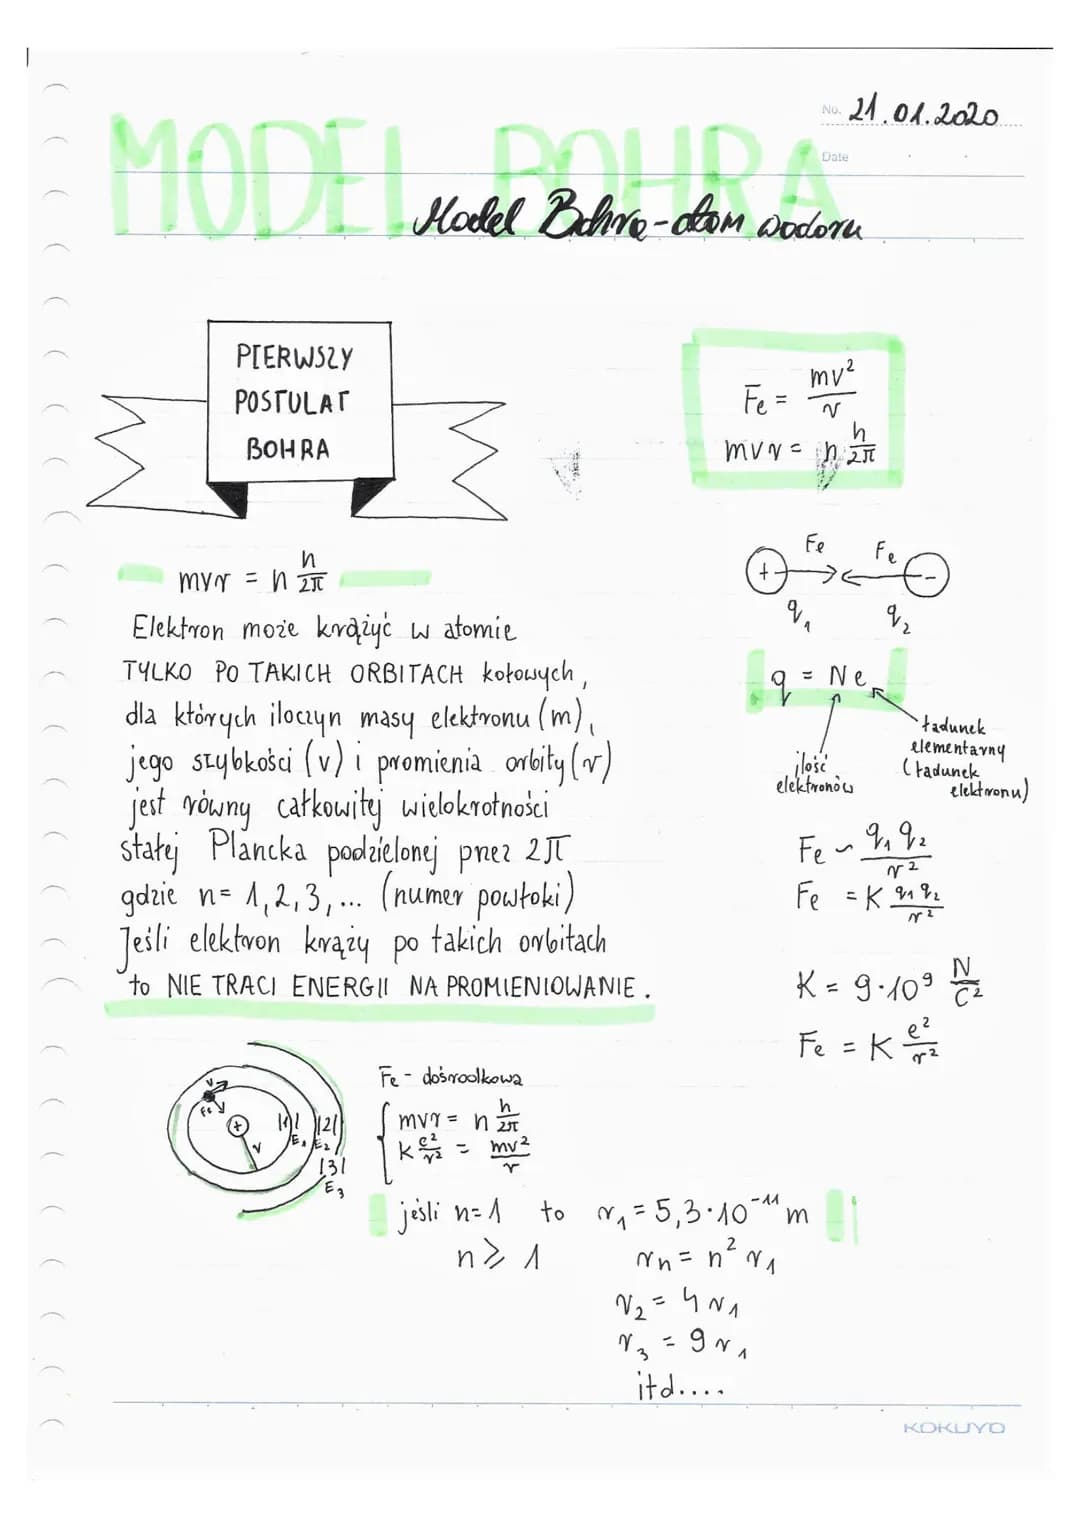 No. 21.01.2020
Date
MODEL BOHRA
Model Bohra-atom wodoru
PIERWSZY
POSTULAT
BOHRA
Fe = mv²/r
mvr = n h/2π
mvr = n h/2π
Elektron może krążyć w atomie
TYLKO PO TAKICH ORBITACH kołowych,
dla których iloczyn masy elektronu (m),
jego szybkości (v) i promienia orbity (r)
jest równy całkowitej wielokrotności
stałej Plancka podzielonej przez 2π
gdzie n = 1, 2, 3, ... (numer powłoki)
Jeśli elektron krąży po takich orbitach
to NIE TRACI ENERGII NA PROMIENIOWANIE.
Fe Fe
+ -
q₁ q₂
q = Ne
ilość
elektronów
ładunek
elementarny
(ładunek
elektronu)
Fe ~ q₁ q₂/r²
Fe = K q₁ q₂/r²
K = 9·10⁹ N/C²
Fe = K e²/r²
v
Fe
+
r
|1| |2|
E₁ E₂
|3|
E₃
Fe - dośrodkowa
mvr = n h/2π
k e²/r² = mv²/r
jeśli n=1 to r₁ = 5,3·10⁻¹¹ m
n ⩾ 1 rn = n² r₁
r₂ = 4 r₁
r₃ = 9 r₁
itd....
KOKUYO